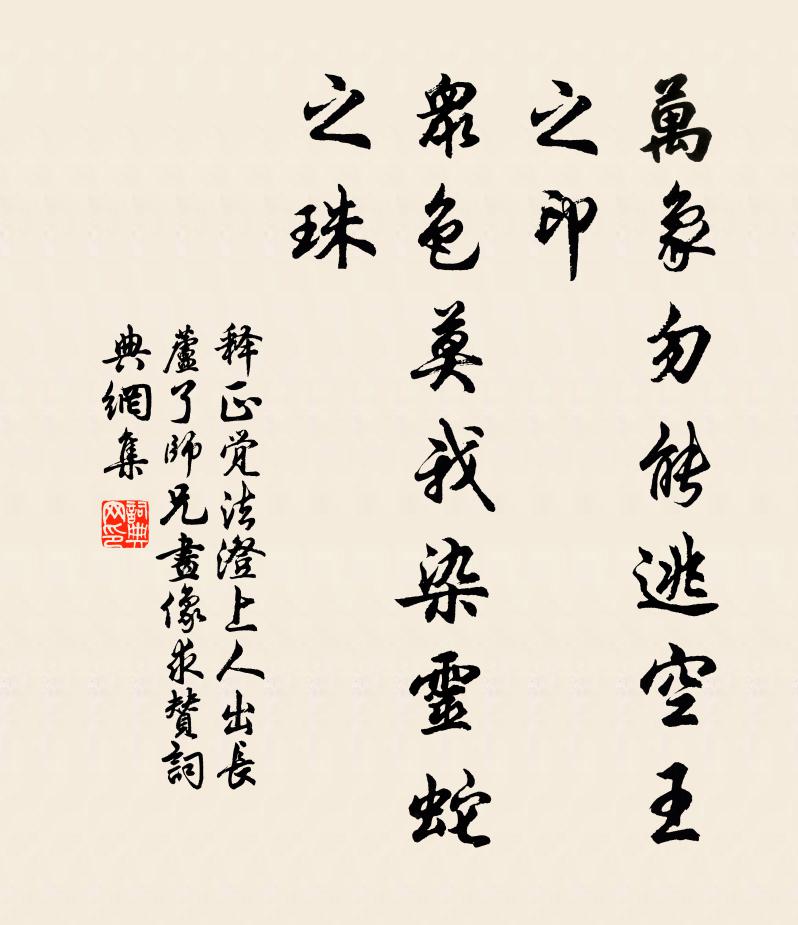 萬象勿能逃空王
之印
眾色莫我染靈蛇
之珠
释正觉法澄上人出長
蘆了師兄畫像求赞詞
典網集
詞典網印